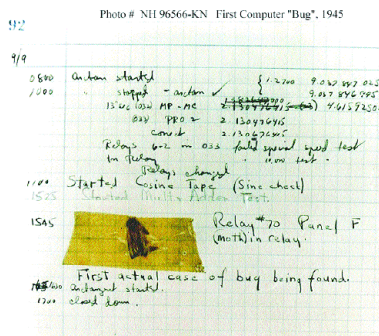 Photo # NH 96566-KN First Computer "Bug", 1945
92
9/9
0800 antan started
1000 " stopped - antan ✓ { 1.2700 9.037 847 025
9.037 846 995
13"uc (032) MP-MC 4.615925059(-2)
(033) PRO 2 2.130476415
correct 2.130676415
Relays 6-2 in 033 failed special speed test
in relay " test.
Relays changed
1100 Started Cosine Tape (Sine check)
1525 Started Multi Adder Test.
1545 Relay #70 Panel F
(moth) in relay.
First actual case of bug being found.
antangent started.
1700 closed down.